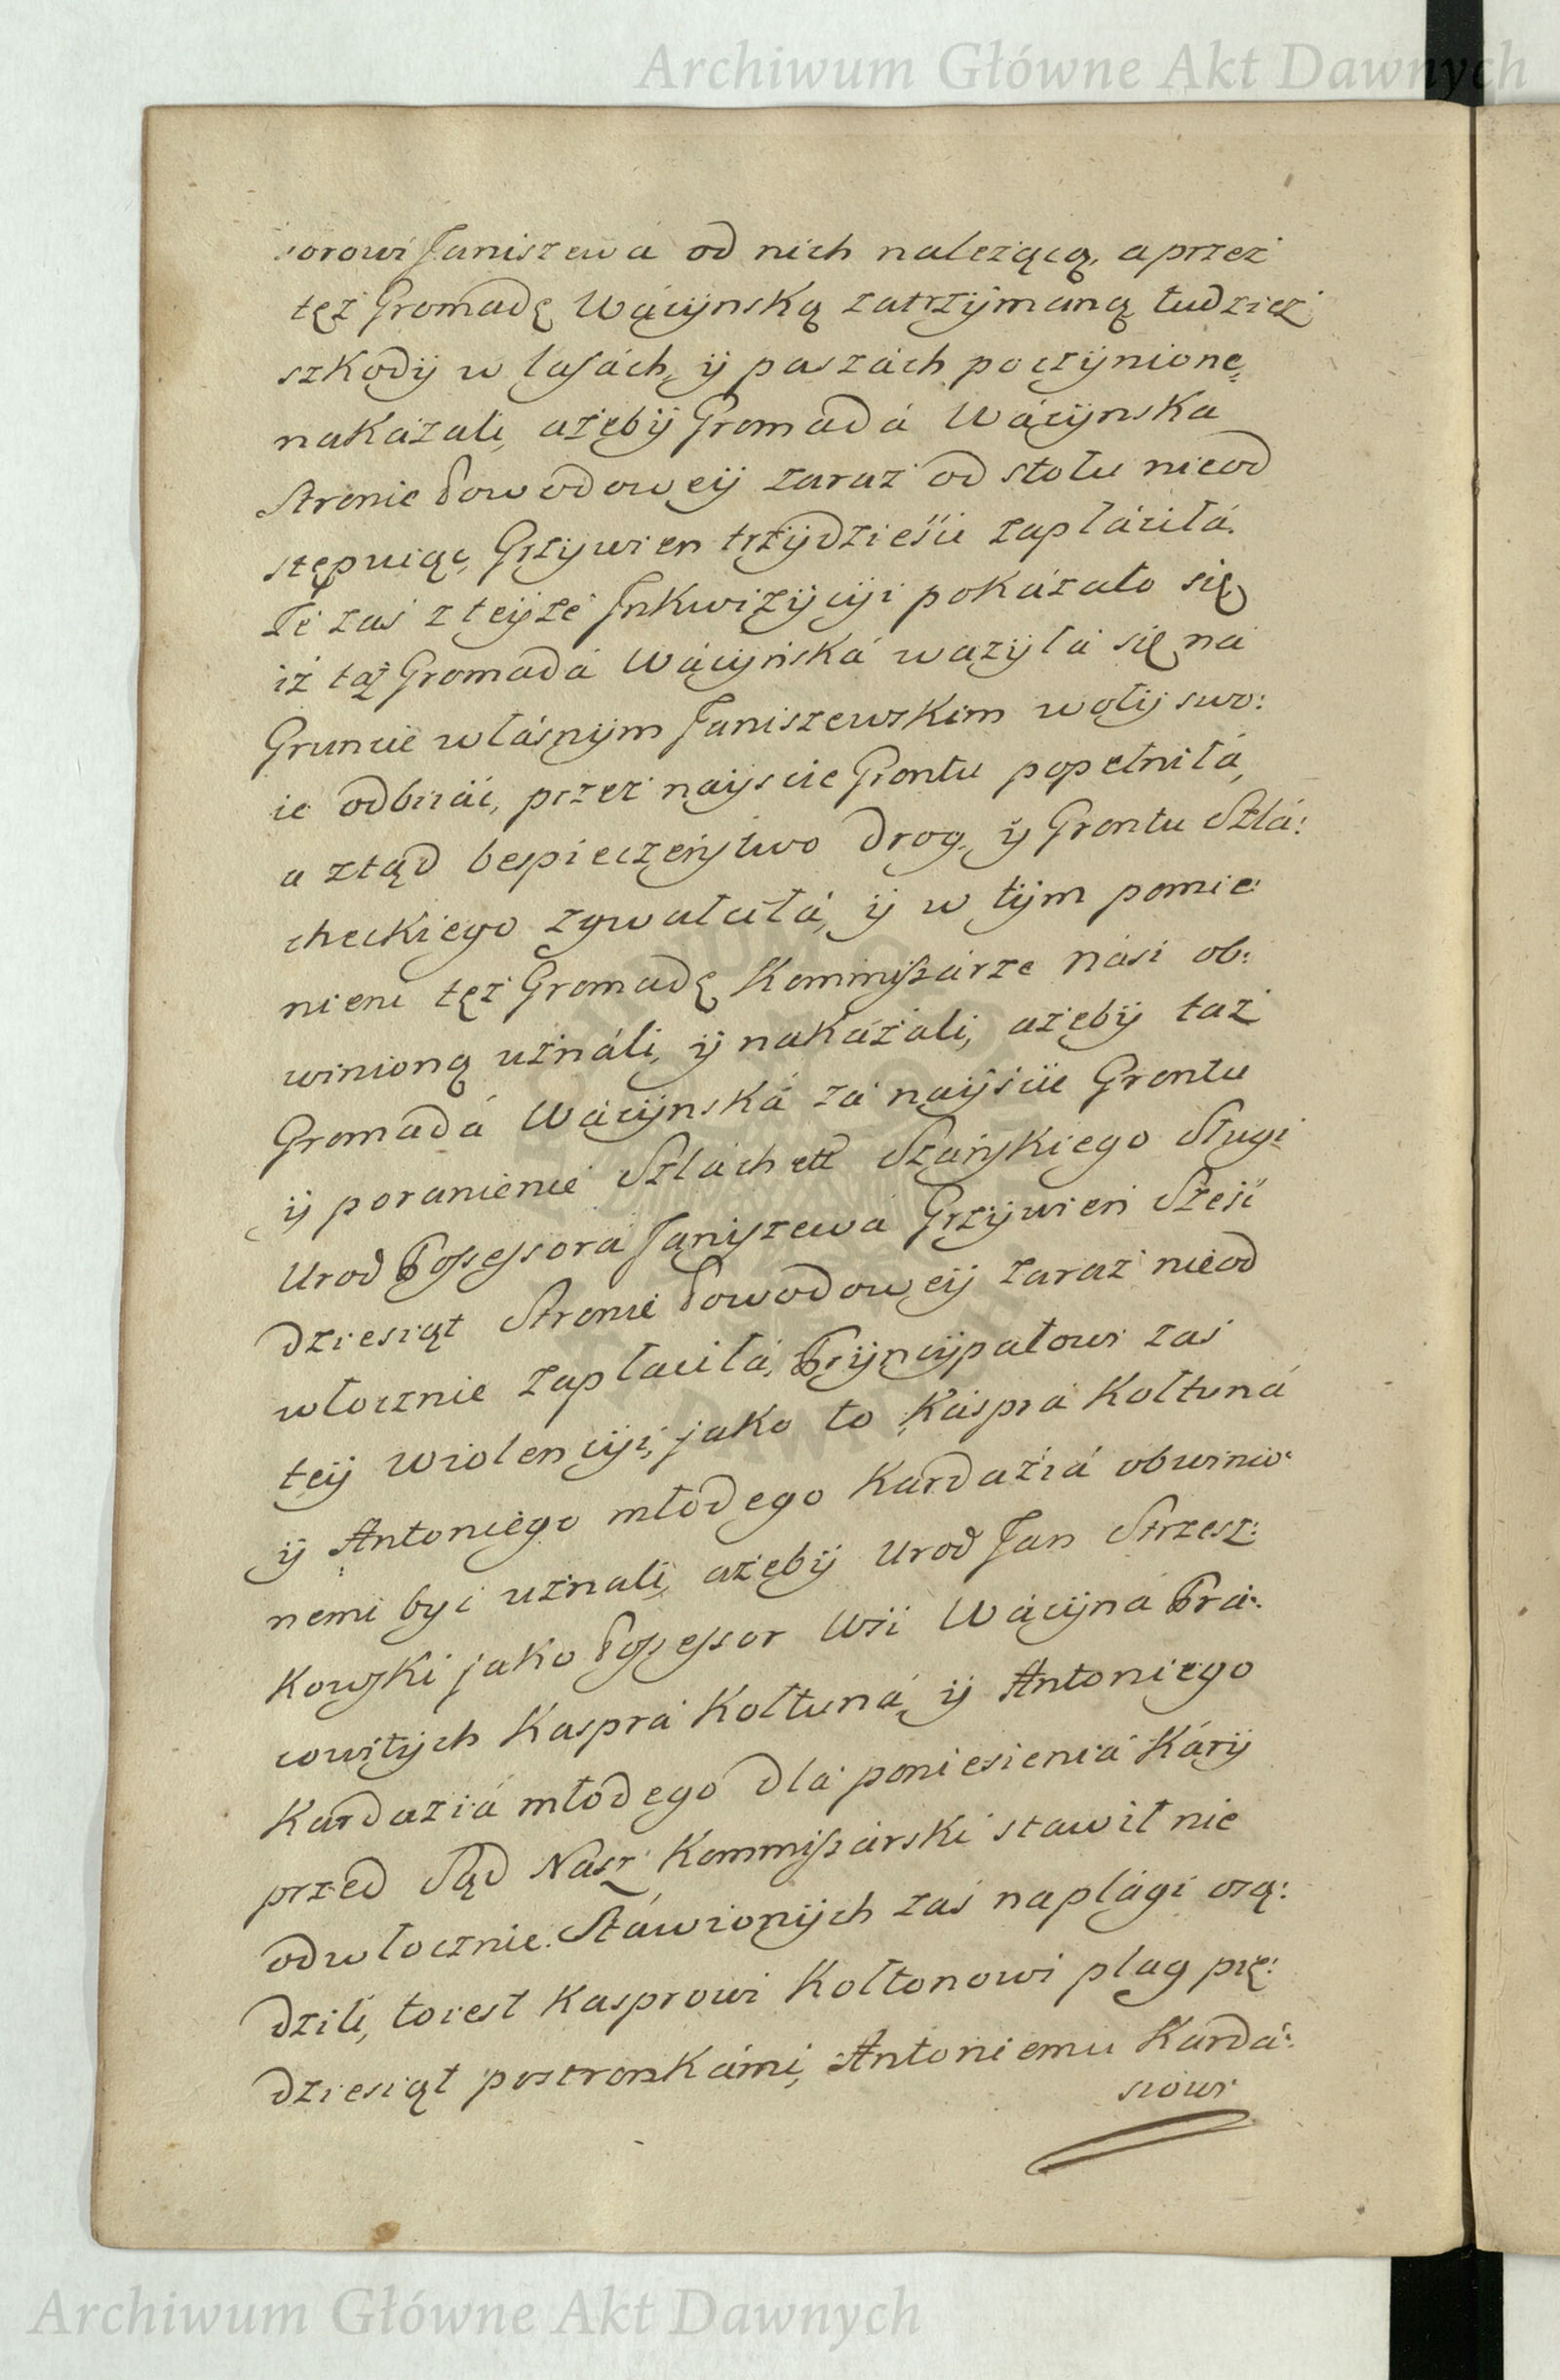 Archiwum Główne Akt Dawnych
sorowi Janiszewá od nich należącą, a przez
tęż Gromadę Wącÿnską zatrzÿmaną tudzież
szkodÿ w lasách, ÿ paszách poczÿnione,
nakázali, ażebÿ Gromadá Wácÿnska
Stronie Powodoweÿ zaraz od stołu nieod
stępuiąc, Grzÿwien trzÿdzieści zapłáciłá.
Że zaś z teÿże Inkwizÿcÿi pokázało się
iż taż Gromadá Wącÿńská ważÿłá się ná
Gruncie włásnÿm Janiszewskim wołÿ swo:
ie odbiiáć, przez naÿscie Grontu popełniłá,
a ztąd bespieczeństwo drog, ÿ Grontu Szlá:
checkiego zgwałciłá, ÿ w tÿm pomie:
nieni tęż Gromadę Kommissárze nási ob:
winioną uználi, ÿ nakázali, ażebÿ taż
Gromadá Wácÿnská zá naÿście Grontu
ÿ poranienie Szláchett Száńskiego Sługi
Urod Possessorá Janiszewá Grzÿwien Sześć
dziesiąt Stronie Powodoweÿ zaraz nieod
włocznie zapłaciłá, Prÿncÿpałowi zas
teÿ wiolencÿi, jako to Káspra Kołtuná
ÿ Antoniego młodego Kardaziá obwinio:
nemi być uznali, ażebÿ Urod Jan Strzesz:
kowski jako Possessor Wsi Wácÿná Prá:
cowitÿch Kaspra Kołtuná, ÿ Antoniego
Kardaziá młodego dlá poniesieniá Kárÿ
przed Sąd Nasz Kommissárski stawił nie
odwłocznie. Stáwionÿch zaś na plági osą:
dzili, toiest Kasprowi Kołtonowi plag pię:
dziesiąt postronkámi, Antoniemu Kardá:
siowi
Archiwum Główne Akt Dawnych